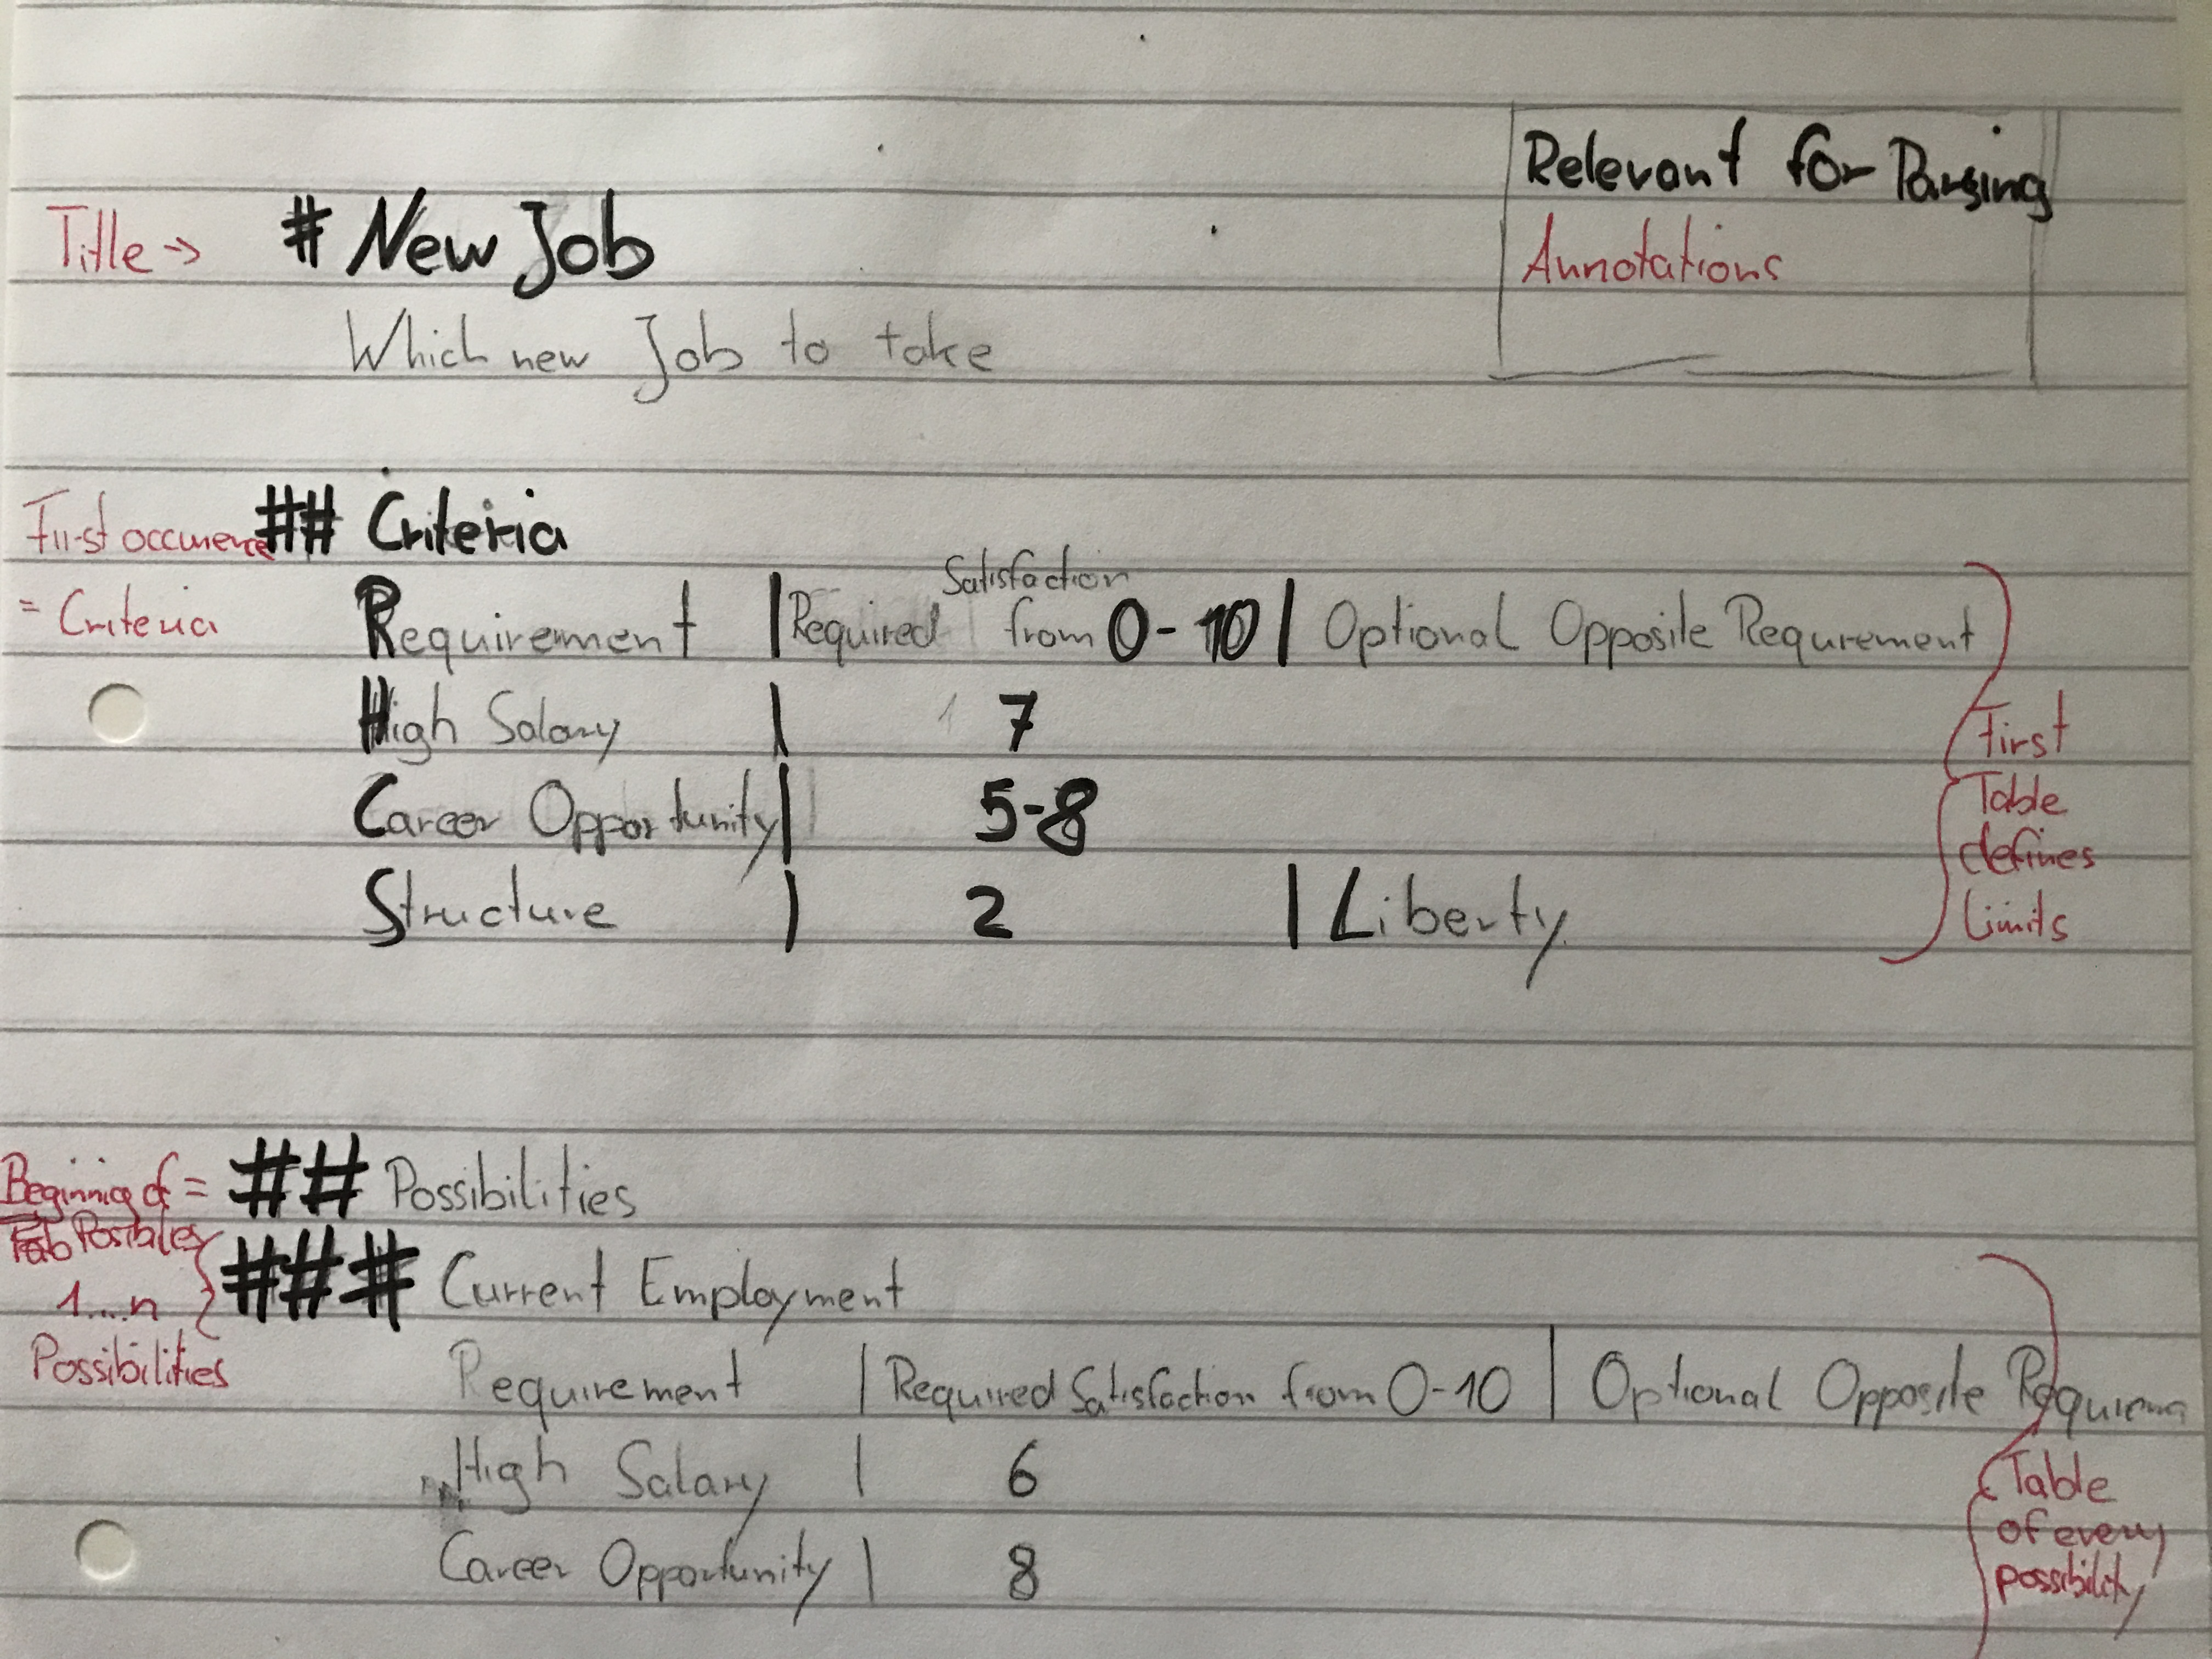 Relevant for Parsing
Annotations
Title -> # New Job
Which new Job to take
First occurence ## Criteria
= Criteria
Requirement | Required Satisfaction from 0-10 | Optional Opposite Requrement
High Salary | 7
Career Opportunity | 5-8
Structure | 2 | Liberty
First
Table
defines
Limits
Beginning of = ## Possibilities
Possibles
1....n
Possibilities
### Current Employment
Requirement | Required Satisfaction from 0-10 | Optional Opposite
High Salary | 6
Career Opportunity | 8
Table
of every
possibility